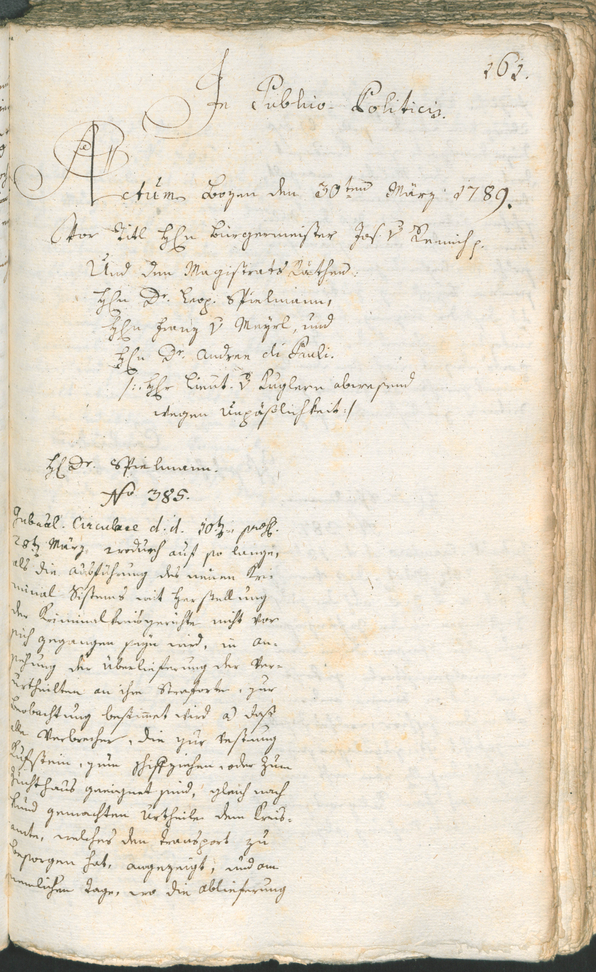 161.
In Publico-Politicis.
Actum Bozen den 30ten März 1789.
Vor Titl Hhn Bürgermeister Jos. v Remich p.
Und den Magistrats Räthen:
Hhn Dr. Leop. Spielmann,
Hhn Franz v Mayrl, und
Hhn Dr. Andree di Pauli.
/: Hhr Lieut. v Kuglern abwesend
wegen Unpäßlichkeit :/
Hh Dr. Spielmann.
No. 385.
Gubernal. Circulare d. d. 10t
28t März, wodurch auf so lange,
als die Ausführung des neuen Kri-
minal Sistems mit Herstellung
der Kriminalkreisgerichte nicht vor
sich gegangen seyn wird, in An-
sehung der Überlieferung der Ver-
urtheilten an ihre Straforte, zur
Beobachtung bestimmet wird, daß
alle Verbrecher, die zur Vestung
Kufstein, zum Schiffziehen, oder zum
Zuchthaus geeignet sind, gleich nach
kund gemachten Urtheile dem Kreis-
amte, welches den Transport zu
besorgen hat, angezeigt, und am
nemlichen Tage, wo die Ablieferung